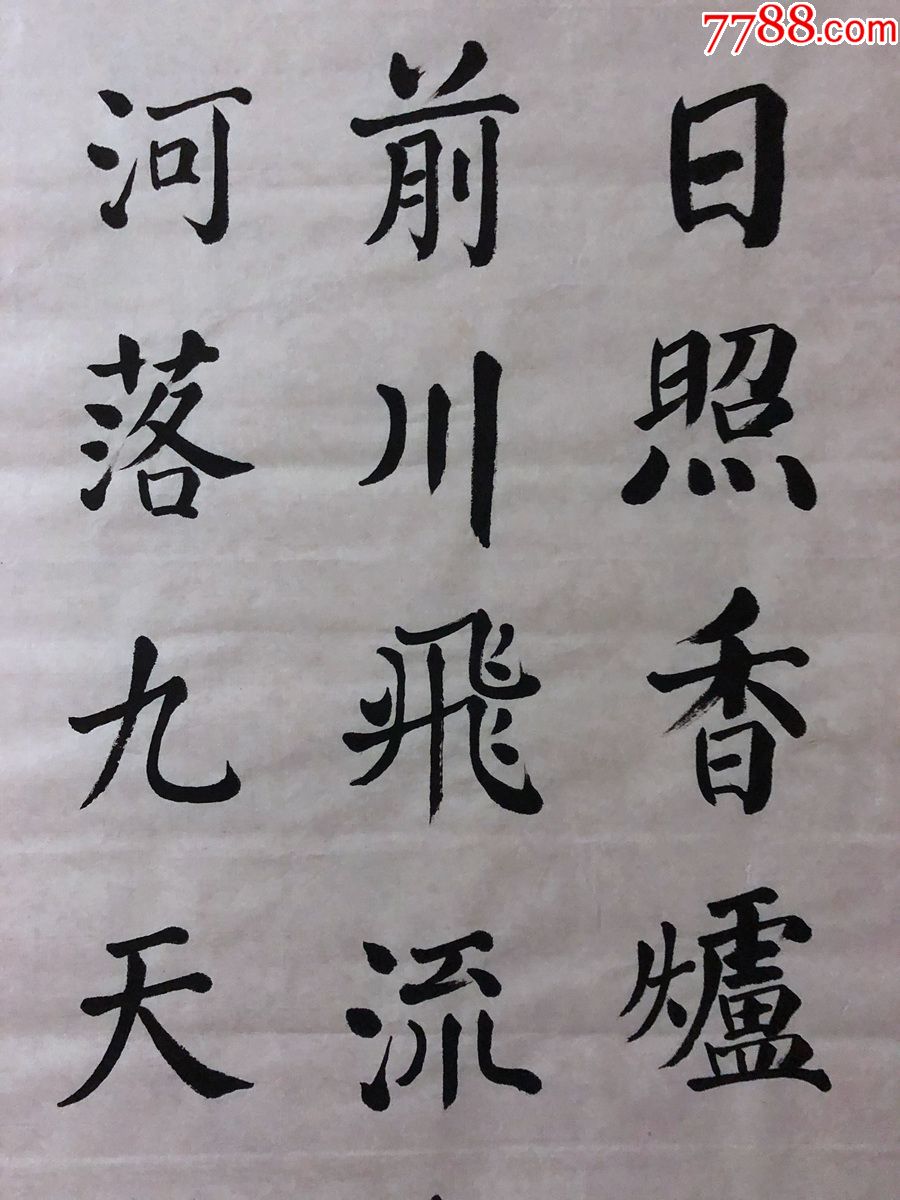 日照香爐
前川飛流
河落九天
7788.com